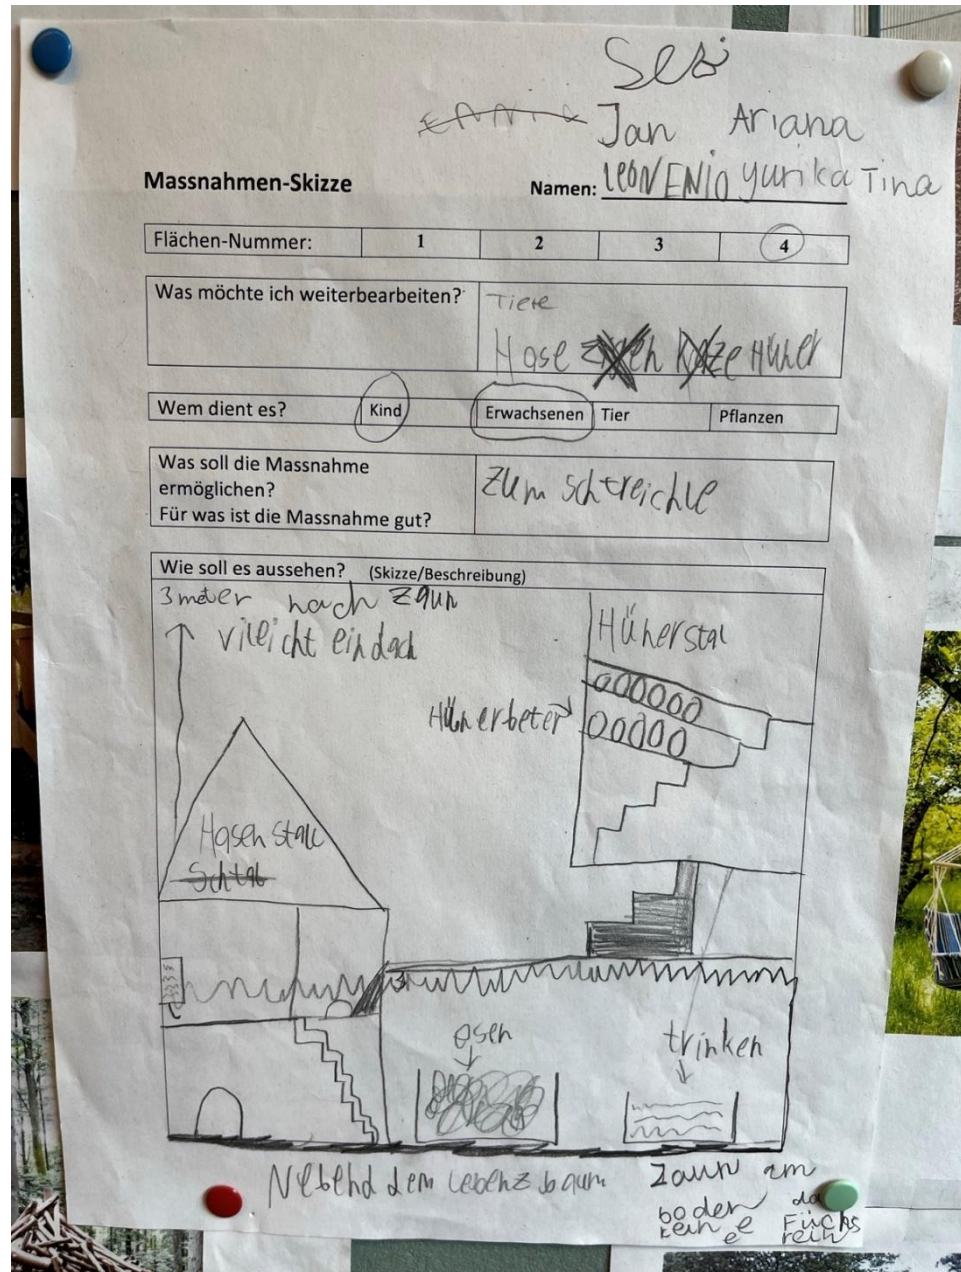 Sesi
Ennia Jan Ariana
Massnahmen-Skizze Namen: Leon ENIO yurika Tina
Flächen-Nummer: 1 2 3 4
Was möchte ich weiterbearbeiten? Tiere
Hase Hüner
Wem dient es? Kind Erwachsenen Tier Pflanzen
Was soll die Massnahme
ermöglichen?
Für was ist die Massnahme gut?
Zum schtreichle
Wie soll es aussehen? (Skizze/Beschreibung)
3 meter hoch Zaun
vileicht ein dach
Hünerstal
Hünerbeter
Hasen stall
Schtal
esen
trinken
Nebend dem Lebenz baum
Zaun am
boden da
keine Füchs
rein